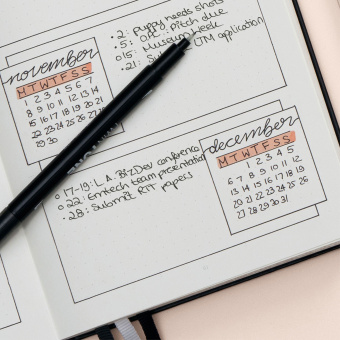 november
M T W T F S S
1 2 3 4 5 6 7
8 9 10 11 12 13 14
15 16 17 18 19 20 21
22 23 24 25 26 27 28
29 30
• 2: Puppy needs shots
• 5: pitch due
○ 15: Museum week
• 21: LTM application
december
M T W T F S S
1 2 3 4 5
6 7 8 9 10 11 12
13 14 15 16 17 18 19
20 21 22 23 24 25 26
27 28 29 30 31
○ 17-19: L.A. BizDev conference
○ 22: Emtech team presentation
• 28: Submit RIT papers